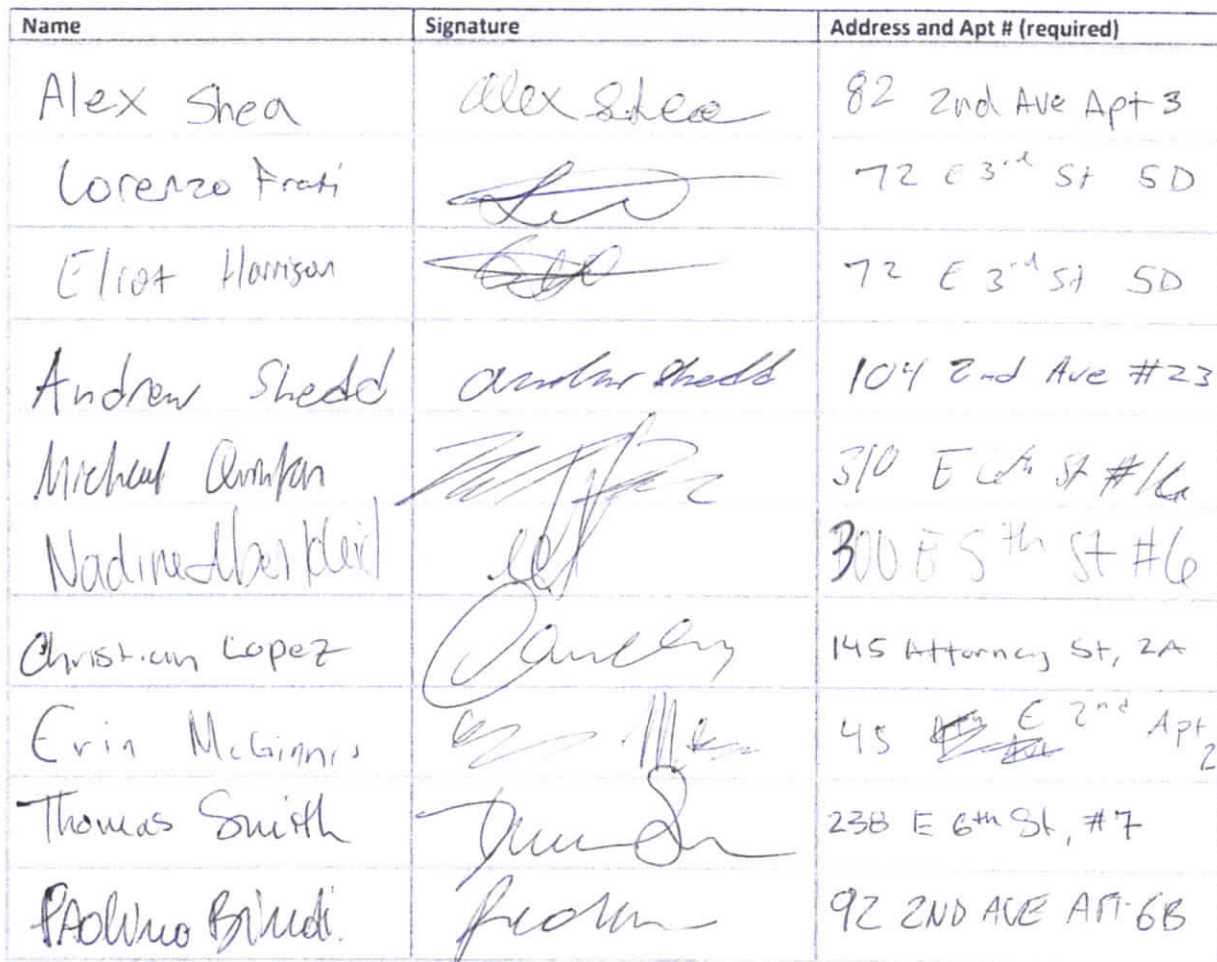 Name Signature Address and Apt # (required)
Alex Shea Alex Shea 82 2nd Ave Apt 3
Lorenzo Frati 72 E 3rd St 5D
Eliot Harrison 72 E 3rd St 5D
Andrew Shedd Andrew Shedd 104 2nd Ave #23
Michael 310 E 6th St
Nadine 300 E 5th St #6
Christian Lopez 145 Attorney St, 2A
Erin McGinnis 45 E 2nd Apt 2
Thomas Smith 238 E 6th St, #7
PAolino Bindi. 92 2ND AVE APT 6B